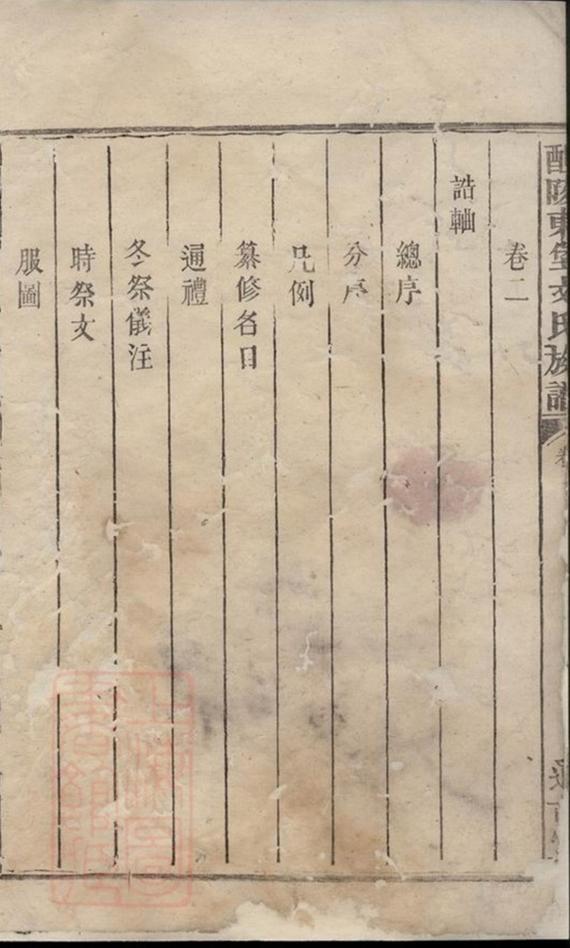 醴陵東堡文氏族譜
卷
卷二
誥軸
總序
分序
凡例
纂修名目
通禮
冬祭儀注
時祭文
服圖
上海圖書館藏